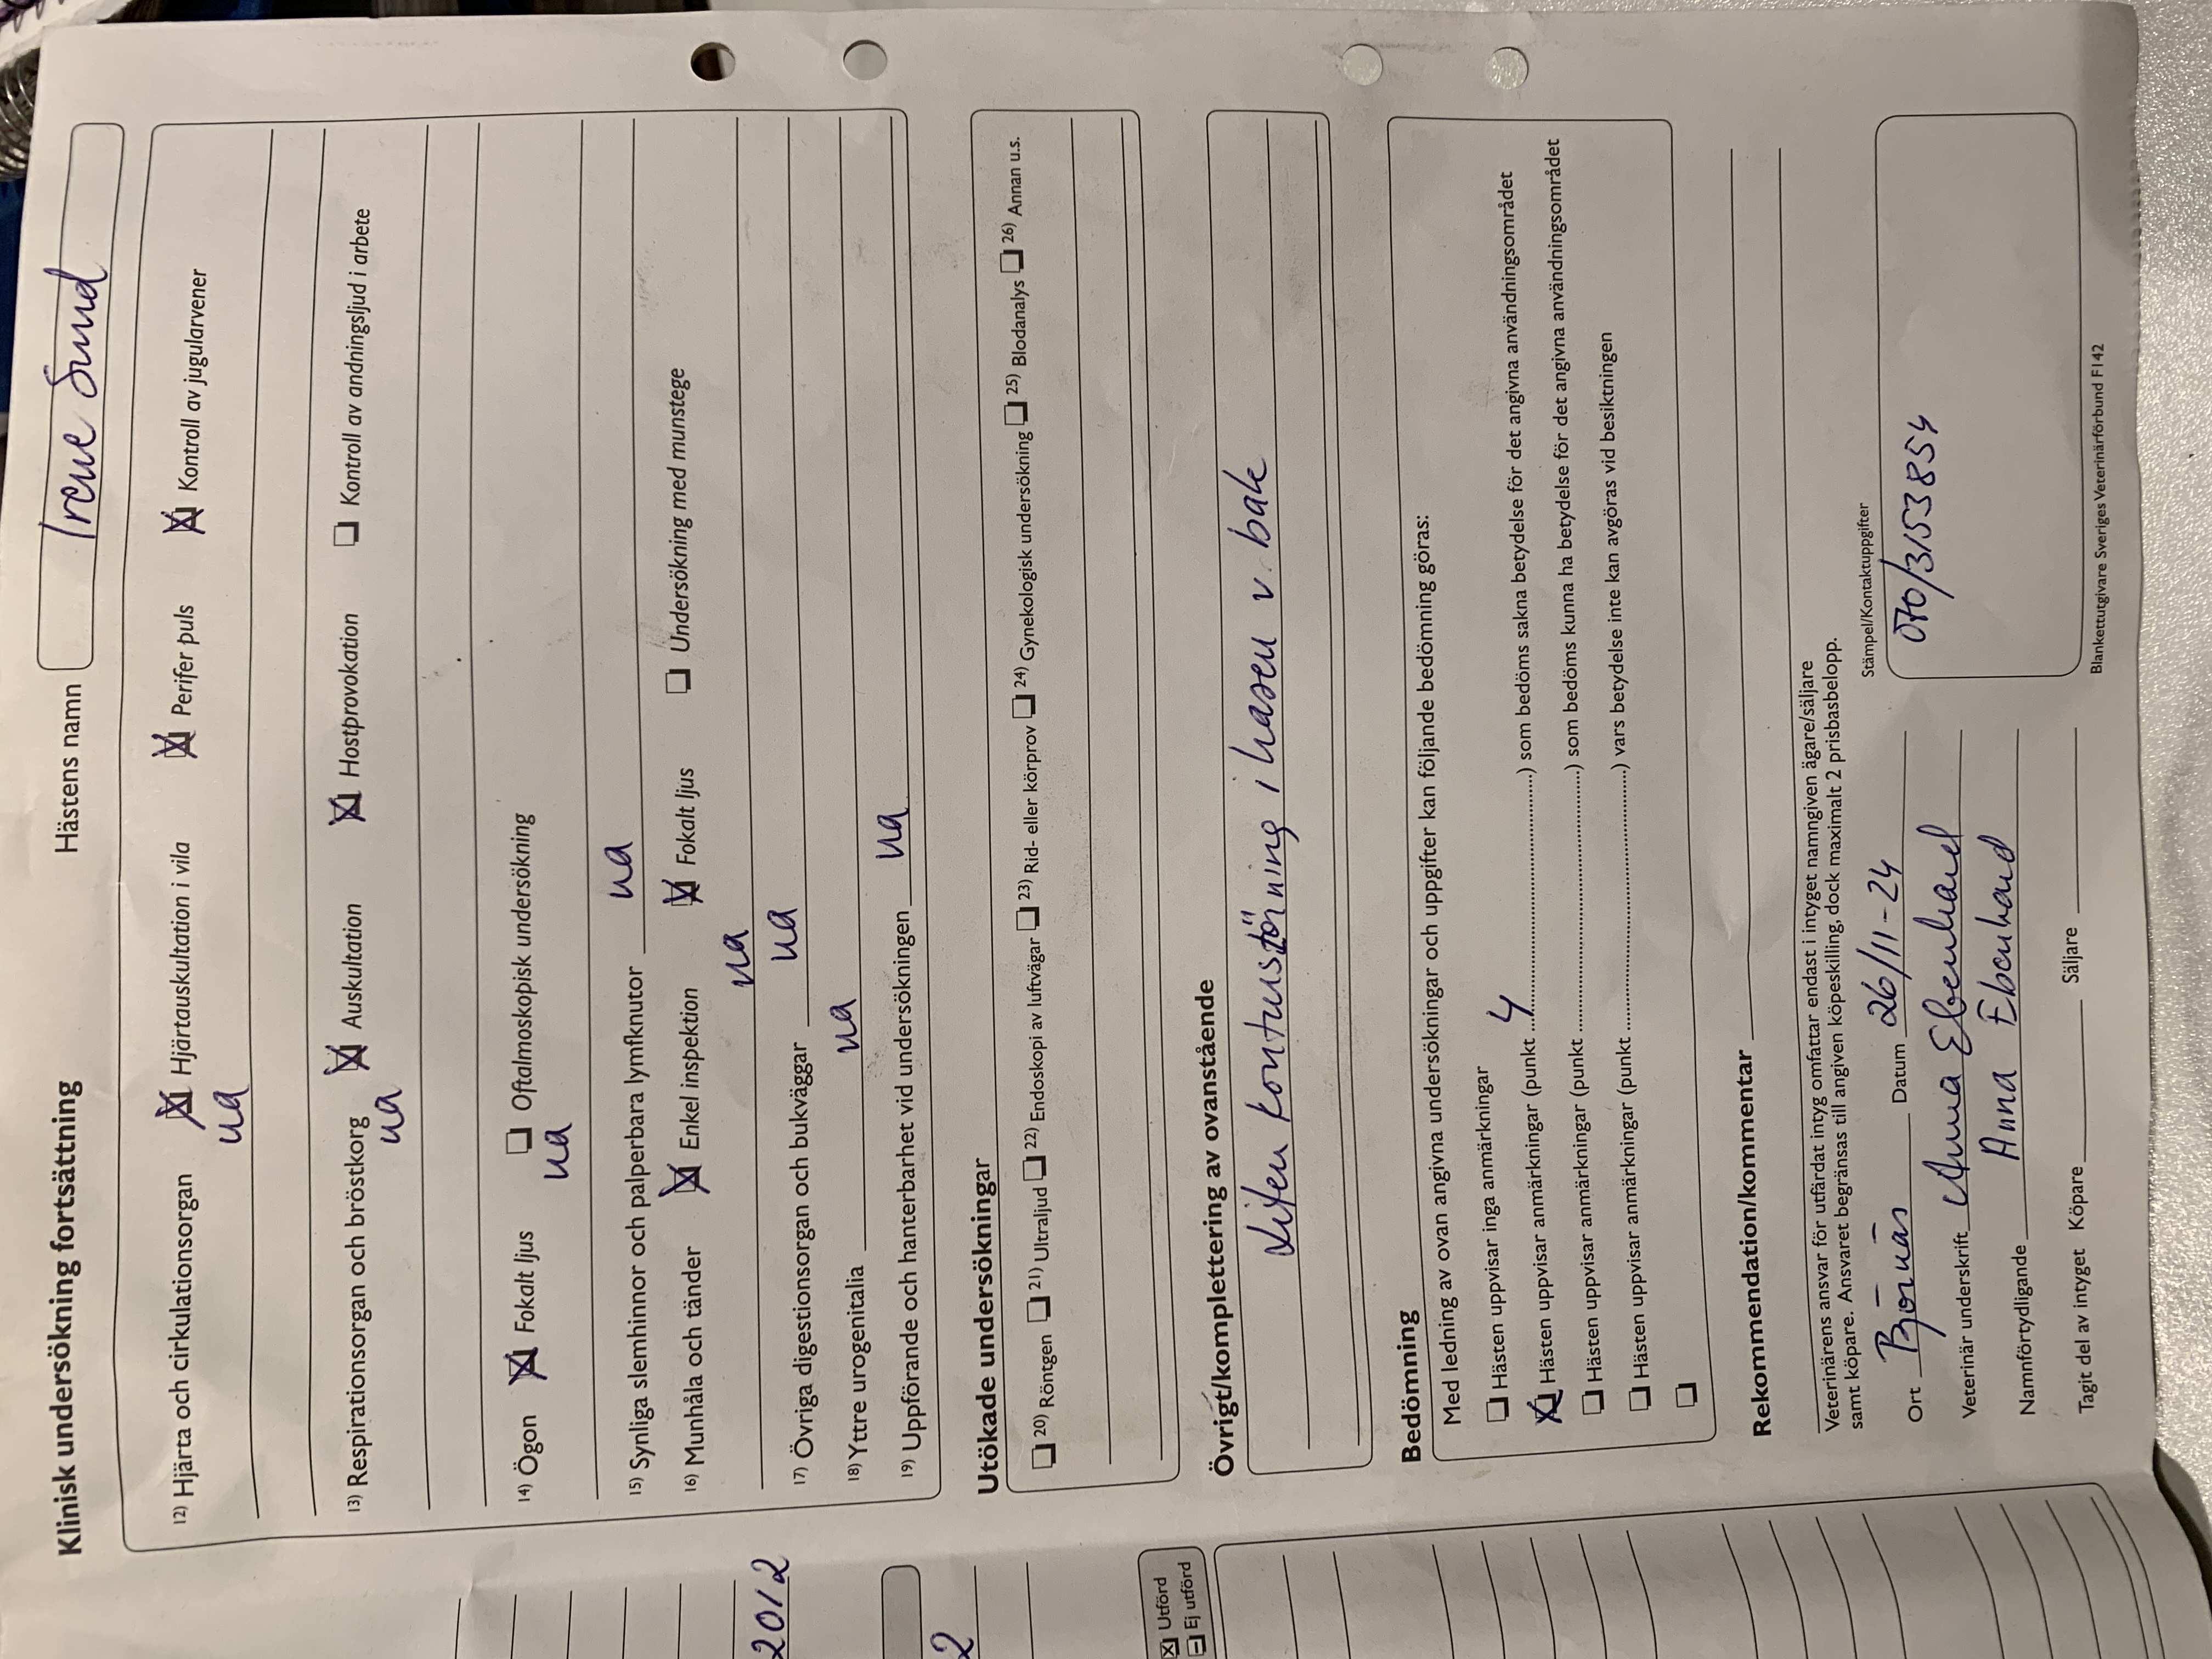 Klinisk undersökning fortsättning Hästens namn Irene Sund
12) Hjärta och cirkulationsorgan ☒ Hjärtauskultation i vila ☒ Perifer puls ☒ Kontroll av jugularvener
ua
13) Respirationsorgan och bröstkorg ☒ Auskultation ☒ Hostprovokation ☐ Kontroll av andningsljud i arbete
ua
14) Ögon ☒ Fokalt ljus ☐ Oftalmoskopisk undersökning
ua
15) Synliga slemhinnor och palperbara lymfknutor ua
16) Munhåla och tänder ☒ Enkel inspektion ☒ Fokalt ljus ☐ Undersökning med munstege
ua
17) Övriga digestionsorgan och bukväggar ua
18) Yttre urogenitalia ua
19) Uppförande och hanterbarhet vid undersökningen ua
Utökade undersökningar
☐ 20) Röntgen ☐ 21) Ultraljud ☐ 22) Endoskopi av luftvägar ☐ 23) Rid- eller körprov ☐ 24) Gynekologisk undersökning ☐ 25) Blodanalys ☐ 26) Annan u.s.
Övrigt/komplettering av ovanstående
Liten konturstörning i hasen v. bak
Bedömning
Med ledning av ovan angivna undersökningar och uppgifter kan följande bedömning göras:
☐ Hästen uppvisar inga anmärkningar
☒ Hästen uppvisar anmärkningar (punkt 4) som bedöms sakna betydelse för det angivna användningsområdet
☐ Hästen uppvisar anmärkningar (punkt ) som bedöms kunna ha betydelse för det angivna användningsområdet
☐ Hästen uppvisar anmärkningar (punkt ) vars betydelse inte kan avgöras vid besiktningen
☐
Rekommendation/kommentar
Veterinärens ansvar för utfärdat intyg omfattar endast i intyget namngiven ägare/säljare
samt köpare. Ansvaret begränsas till angiven köpeskilling, dock maximalt 2 prisbasbelopp.
Ort Björnäs Datum 26/11-24
Stämpel/Kontaktuppgifter
070/3153854
Veterinär underskrift Anna Ebenhard
Namnförtydligande Anna Ebenhard
Tagit del av intyget Köpare Säljare
Blankettutgivare Sveriges Veterinärförbund F142
2012
2
☒ Utförd
⊟ Ej utförd